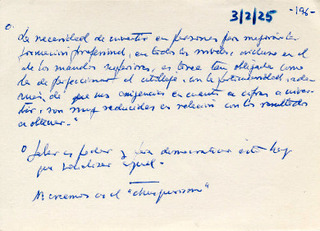 3/2/25 -196-
"La necesidad de invertir en personas por mejorar la
formación profesional, en todos los niveles, incluso en el
de los mandos superiores, es tarea tan obligada como
la de perfeccionar el utillaje, con la particularidad, ade-
más, de que sus exigencias en cuanto a cifras a inver-
tir, son muy reducidas en relación con los resultados
a obtener."
Saber es poder y para democratizar este hay
que socializar aquel.-
No creemos en el